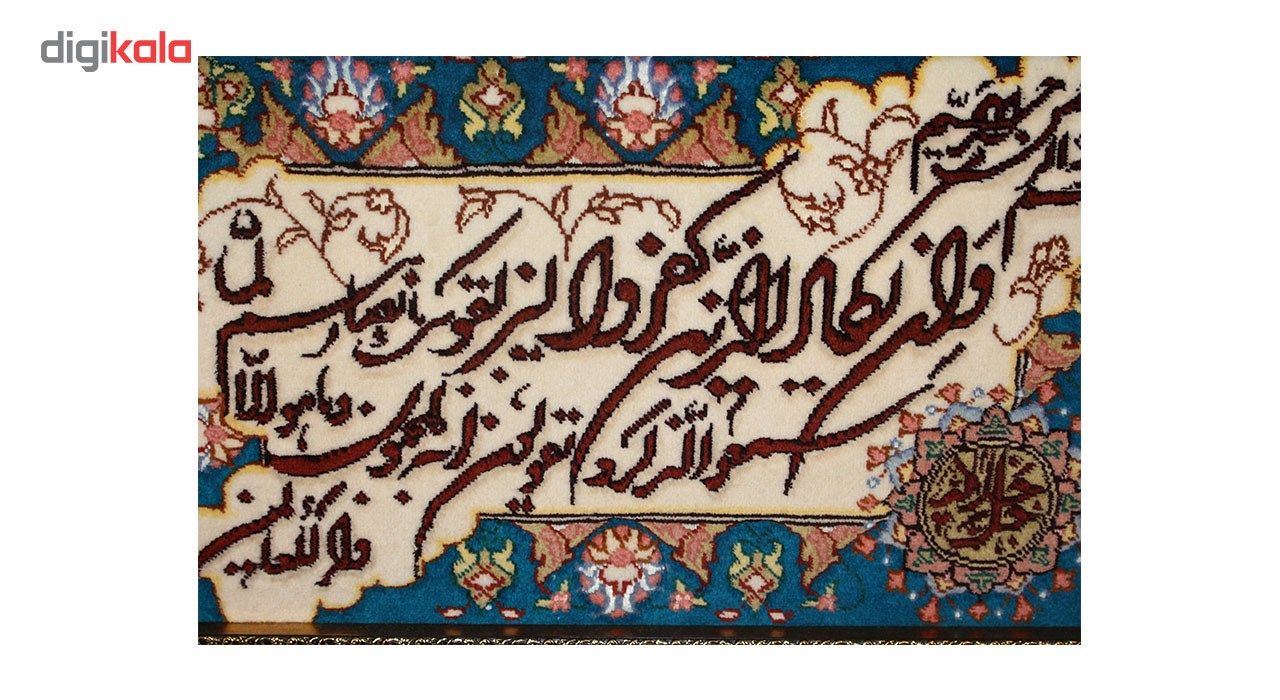 digikala
بسم الله الرحمن الرحیم
وان یکاد الذین کفروا لیزلقونک بابصارهم لما
سمعوا الذکر و یقولون انه لمجنون وما هو الا
ذکر للعالمین